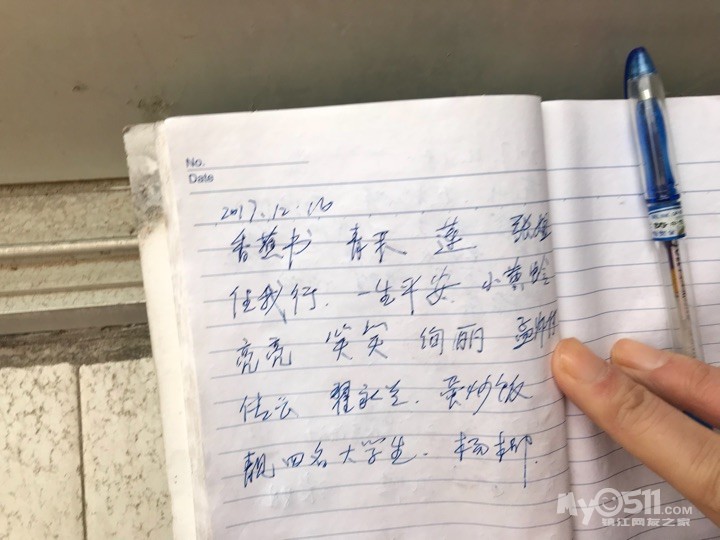 No.
Date
2017.12.16
香蕉书 青禾 莲
任我行. 一生平安. 小黄
亮亮 笑笑 绚丽
翟永兰. 蛋炒饭
靓 四名大学生. 杨
My0511.COM
镇江网友之家